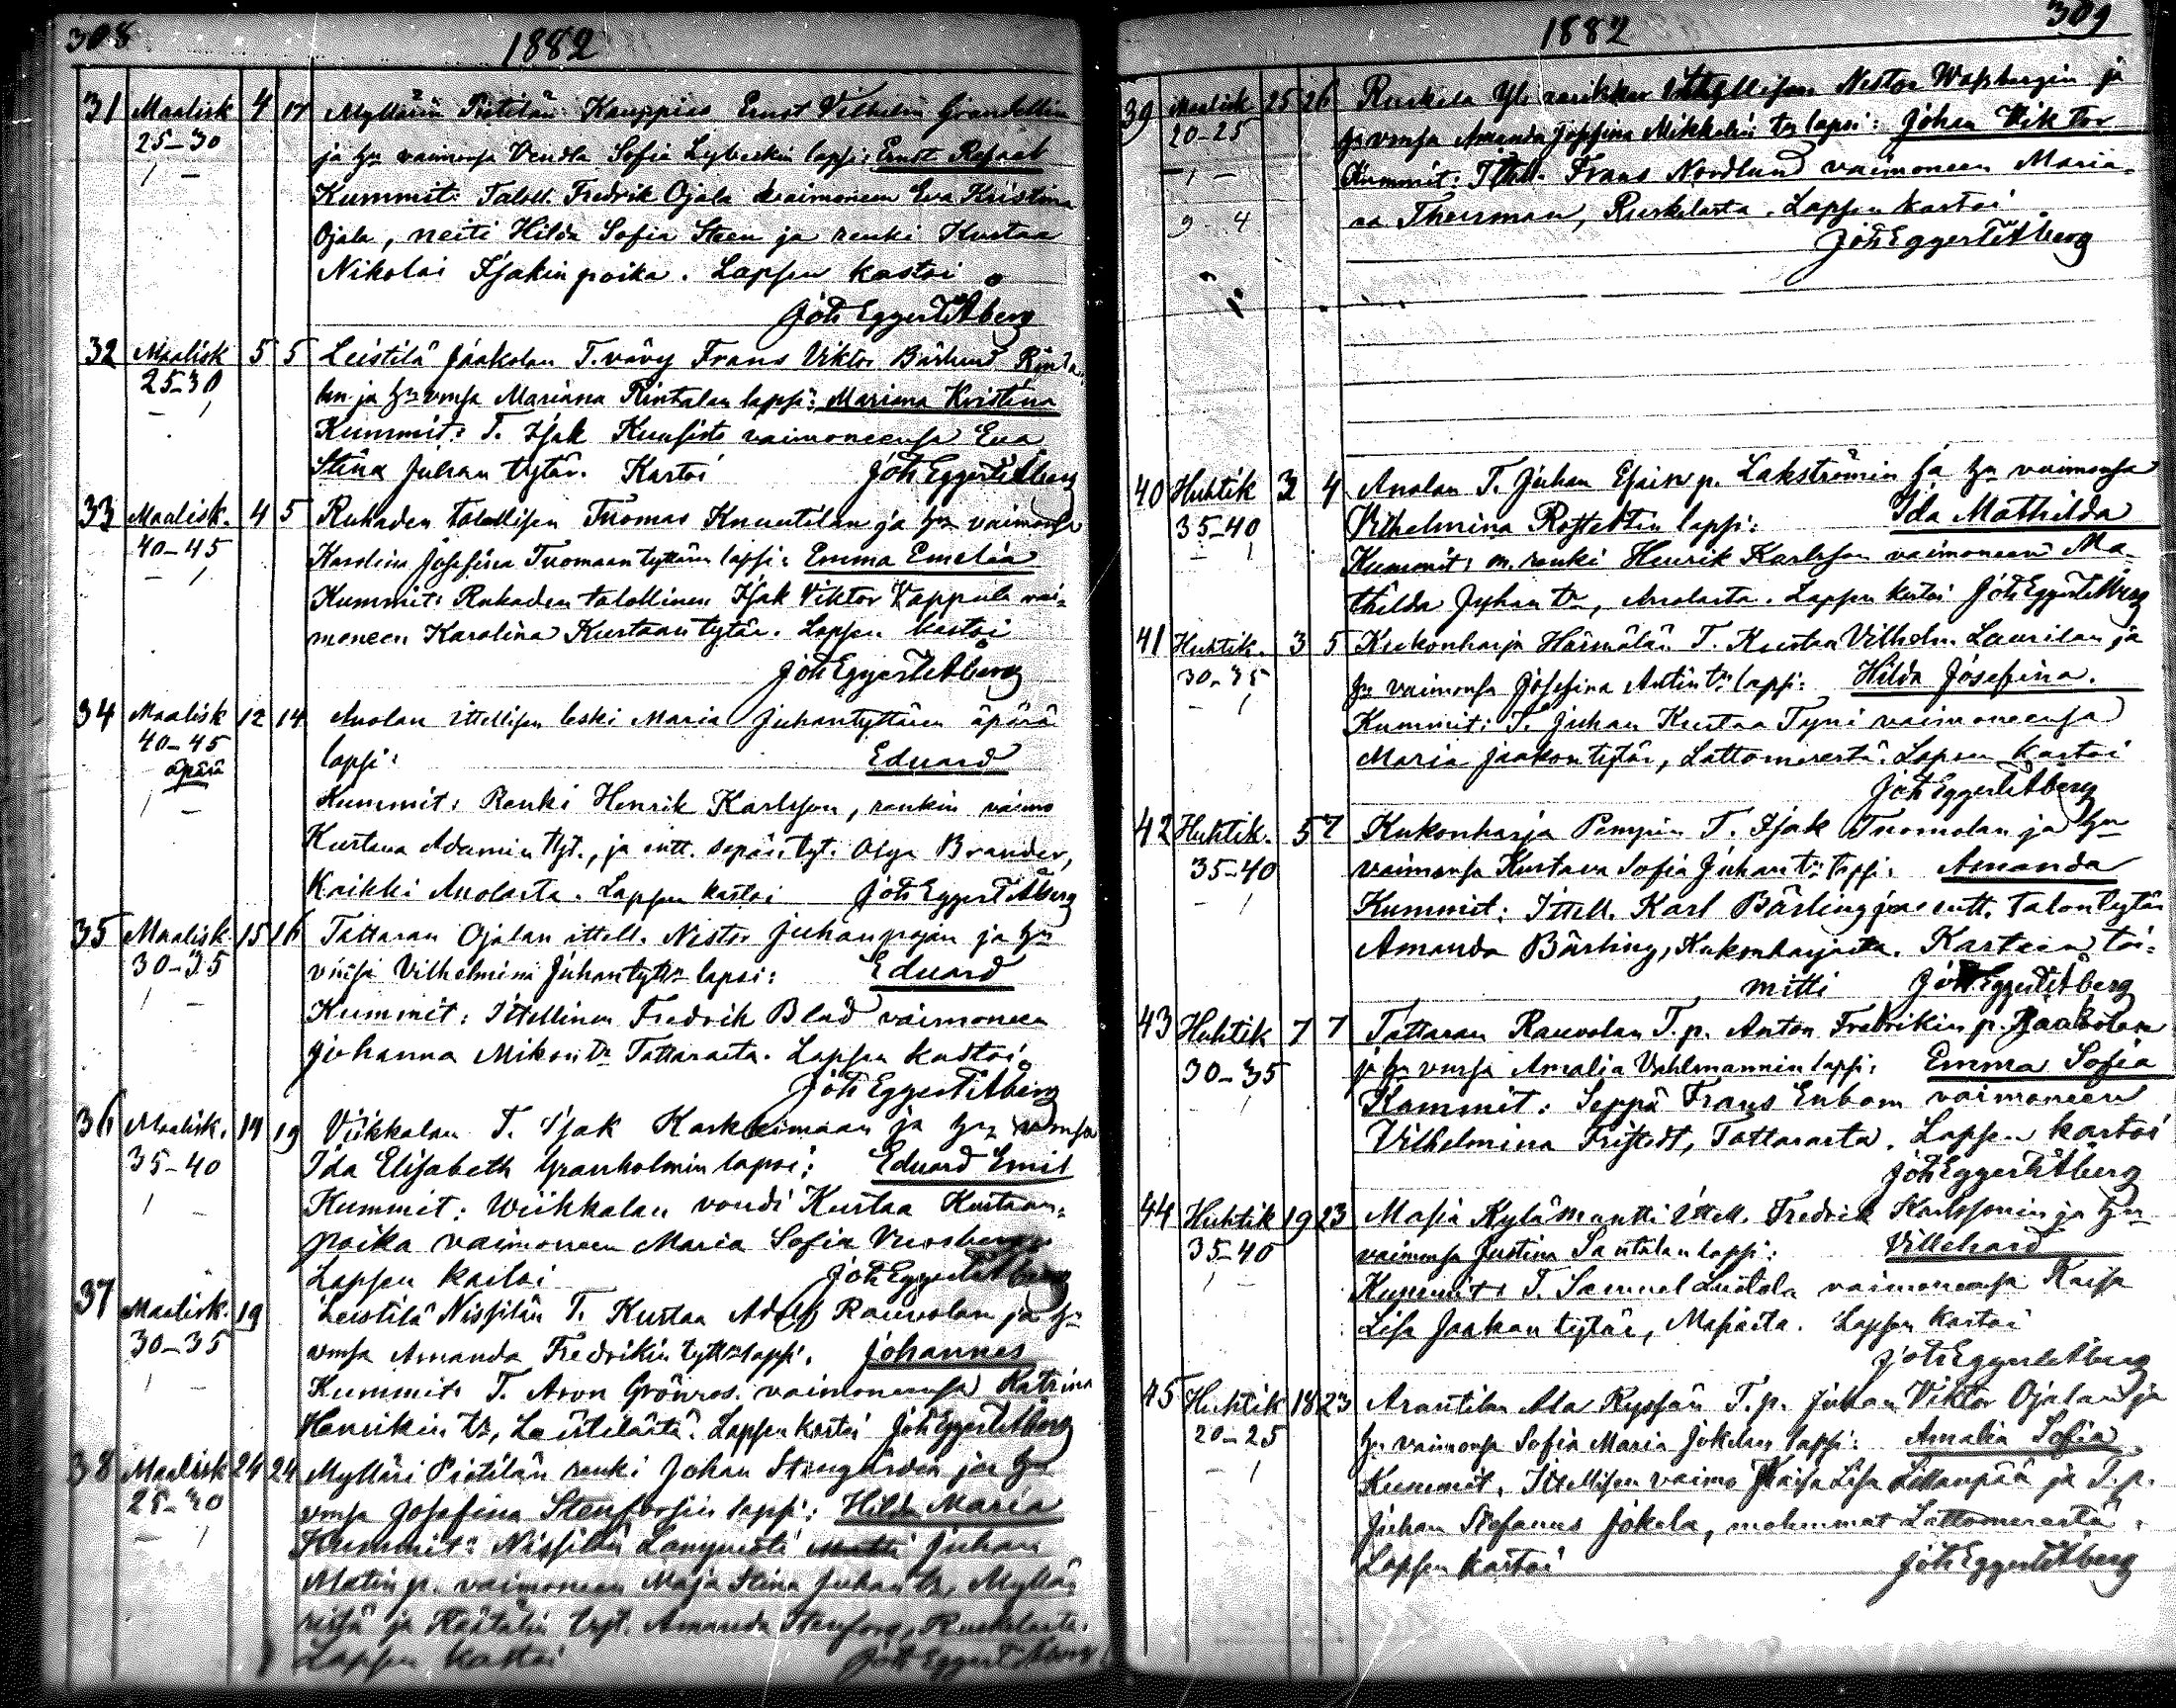 308
1882
31 Maalisk 4 17 Myllärin Pietilän Kauppias Ernst Vilhelm Grandellin
25-30 ja hn vaimonsa Vendla Sofia Lybeckin lapsi: Ernst Rafael
1 - Kummit: Taloll. Fredrik Ojala vaimoneen Eva Kristina
Ojala, neiti Hilda Sofia Steen ja renki Kustaa
Nikolai Isakin poika. Lapsen kastoi
Joh Eggert Åberg
32 Maalisk 5 5 Leistilä Jaakolan T. vävy Frans Viktor Bärlund Rinta
25-30 lan ja hn vmsa Mariana Rintalan lapsi: Mariana Kristina
- 1 Kummit: T. Isak Kuusisto vaimoneensa Eva
Stina Juhan tytär. Kastoi Joh Eggert Åberg
33 Maalisk. 4 5 Ruhaden talollisen Tuomas Knuutilan ja hn vaimonsa
40-45 Karolina Josefina Tuomaan tyttären lapsi: Emma Emelia
- 1 Kummit: Ruhaden talollinen Isak Viktor Vappula vai-
moneen Karolina Kustaan tytär. Lapsen kastoi
Joh Eggert Åberg
34 Maalisk 12 14 Anolan ittellisen leski Maria Juhantyttären äpärä
40-45 lapsi: Eduard
äpärä
1 - Kummit: Renki Henrik Karlsson, renkin vaimo
Kustava Adamin tyt., ja intt. sepän tyt. Olga Brander,
Kaikki Anolasta. Lapsen kastoi Joh Eggert Åberg
35 Maalisk 15 16 Tattaran Ojalan ittell. Nestor Juhanpojan ja hn
30-35 vmsa Vilhelmina Juhantytn lapsi: Eduard
1 - Kummit: Ittellinen Fredrik Blad vaimoneen
Johanna Mikon tr Tattarasta. Lapsen kastoi
Joh Eggert Åberg
36 Maalisk. 19 19 Viikkalan T. Isak Karkkeimaan ja hn vmsa
35-40 Ida Elisabeth Granholmin lapsi: Eduard Emil
1 - Kummit: Wiikkalan voudi Kustaa Kustaan-
poika vaimoneen Maria Sofia
Lapsen kastoi Joh Eggert Åberg
37 Maalisk. 19 Leistilä Nissilän T. Kustaa Adolf Rauvolan ja hn
30-35 vmsa Amanda Fredrikin tyttn lapsi. Johannes
1 - Kummit: T. Aron Grönros vaimoneensa Katrina
Henrikin tr, Leistilästä. Lapsen kastoi Joh Eggert Åberg
38 Maalisk 24 24 Mylläri Pietilän renki Johan Stengårdin ja hn
25-30 vmsa Josefina Stenforsin lapsi: Hilda Maria
- 1 Kummit: Nissilän Juhan
Matin p. vaimoneen Maja Stina Juhan tr, Myllä-
ristä ja tyt. Amanda Stenfors, Ruskelasta.
Lapsen kastoi Joh Eggert Åberg
1882
309
39 Maalisk 25 26 Ruskela Yli Nestor Wahlbergin ja
20-25 hn vmsa Amanda Josefina Mikkelin tr lapsi: Johan Viktor
- 1 - Kummit: Frans Nordlund vaimoneen Maria-
9 4 na Therman, Ruskelasta. Lapsen kastoi
Joh Eggert Åberg
40 Huhtik 3 4 Anolan T. Juhan Esain p. Lakströmin ja hn vaimonsa
35-40 Vilhelmina Rosstedtin lapsi: Ida Mathilda
- 1 Kummit: m. renki Henrik Karlsson vaimoneen Ma-
thilda Juhan tr, Anolasta. Lapsen kastoi Joh Eggert Åberg
41 Huhtik. 3 5 Kukonharja Härmälän T. Kustaa Vilhelm Laurilan ja
30-35 hn vaimonsa Josefina Antin tr lapsi: Hilda Josefina.
- 1 Kummit: T. Juhan Kustaa Tyni vaimoneensa
Maria Jaakon tytär, Lattomerestä. Lapsen kastoi
Joh Eggert Åberg
42 Huhtik. 5 7 Kukonharja Pempin T. Isak Tuomolan ja hn
35-40 vaimonsa Kustava Sofia Juhan tr lapsi: Amanda
- 1 Kummit: Ittell. Karl Bärling ja intt. talontytär
Amanda Bärling, Kukonharjasta. Kasteen toi-
mitti Joh Eggert Åberg
43 Huhtik 7 7 Tattaran Rauvolan T. p. Anton Fredrikin p. Jaakolan
30-35 ja hn vmsa Amalia Vahlmannin lapsi: Emma Sofia
- 1 Kummit: Seppä Frans Enbom vaimoneen
Vilhelmina Fristedt, Tattarasta. Lapsen kastoi
Joh Eggert Åberg
44 Huhtik 19 23 Masia Kylä Mantti ittell. Fredrik Karlssonin ja hn
35-40 vaimonsa Justina Santalan lapsi: Villehard
1 - Kummit: T. Samuel vaimoneensa Kaisa
Lisa Jaakon tytär, Masiasta. Lapsen kastoi
Joh Eggert Åberg
45 Huhtik 18 23 Arantilan Ala Ryssän T. p. Juhan Viktor Ojalan ja
20-25 hn vaimonsa Sofia Maria Jokelan lapsi: Amalia Sofia
- 1 Kummit. Ittellisen vaimo Kaisa Lisa ja T. p.
Juhan Stefanus Jokela, molemmat Lattomerestä.
Lapsen kastoi Joh Eggert Åberg